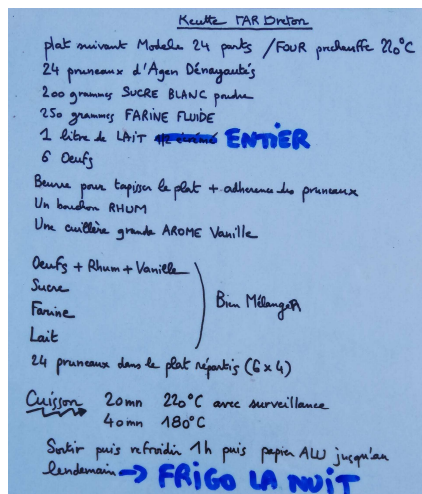 Recette FAR Breton
plat suivant Modele 24 parts / FOUR prechauffe 220°C
24 pruneaux d'Agen Dénoyautés
200 grammes SUCRE BLANC poudre
250 grammes FARINE FLUIDE
1 litre de LAIT 1/2 écrémé ENTIER
6 Oeufs
Beurre pour tapisser le plat + adherence des pruneaux
Un bouchon RHUM
Une cuillère grande AROME Vanille
Oeufs + Rhum + Vanielle
Sucre
Farine
Lait
Bien Mélanger
24 pruneaux dans le plat répartis (6 x 4)
Cuisson 20mn 220°C avec surveillance
40mn 180°C
Sortir puis refroidir 1h puis papier ALU jusqu'au
lendemain → FRIGO LA NUIT